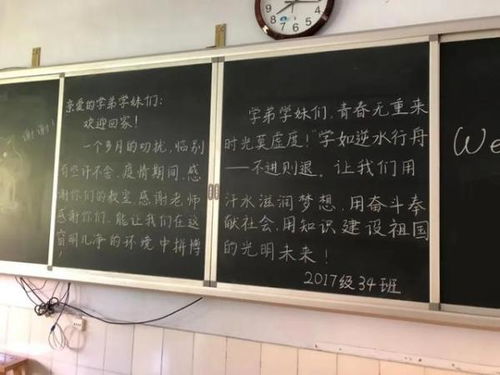 谢谢!
亲爱的学弟学妹们:
欢迎回家!
一个多月的叨扰,临别
有些许不舍,疫情期间,感
谢你们的教室,感谢老师
感谢你们,能让我们在这
窗明几净的环境中拼搏
学弟学妹们,青春无重来
时光莫虚度!学如逆水行舟
——不进则退。让我们用
汗水滋润梦想,用奋斗奉
献社会,用知识建设祖国
的光明未来!
2017级34班
We